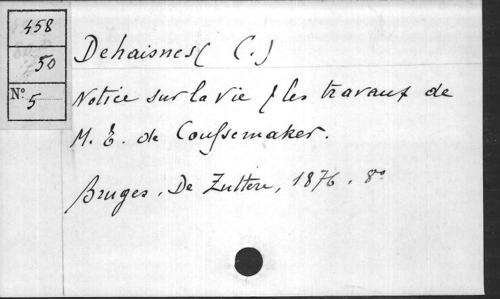 458
50
N° 5
Dehaisnes (C.)
Notice sur la vie & les travaux de
M. E. de Coussemaker.
Bruges. De Zuttere, 1876. 8°